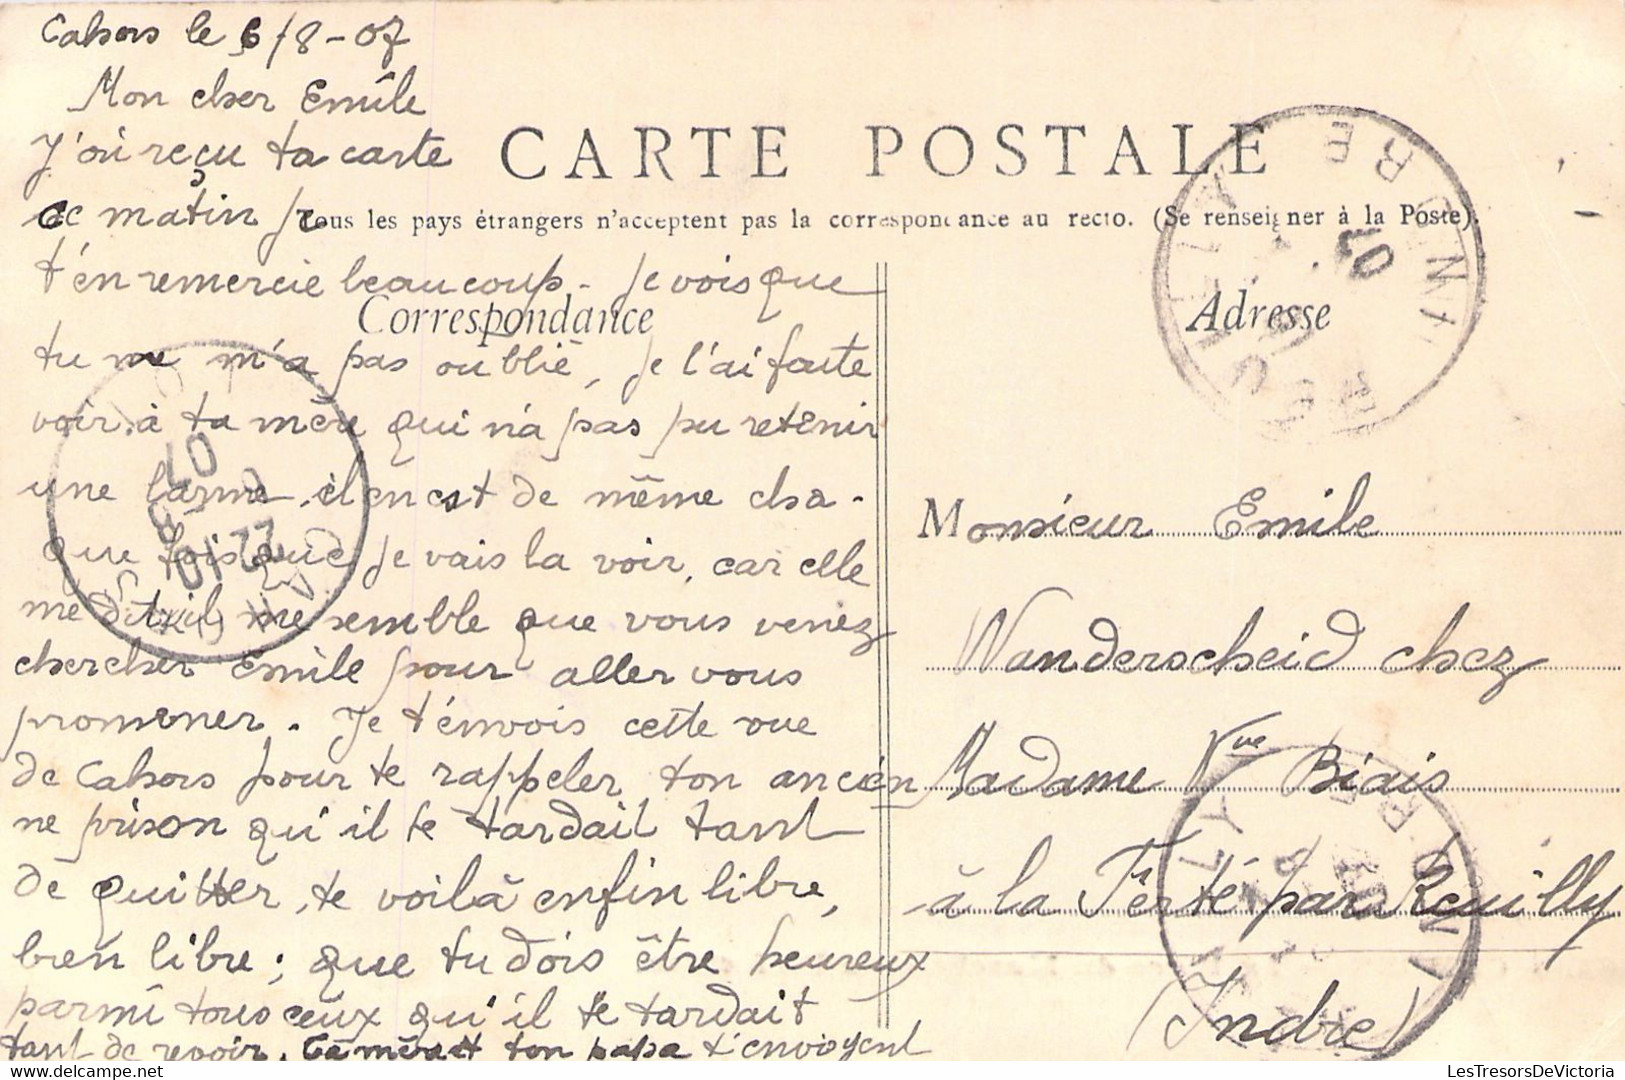 Cahors le 6/8-07
Mon cher Emile
J'ai reçu ta carte
CARTE POSTALE
ce matin je
Tous les pays étrangers n'acceptent pas la correspondance au recto. (Se renseigner à la Poste).
t'en remercie beaucoup. Je vois que
Correspondance
tu ne m'a pas oublié, je l'ai faite
voir à ta mère qui n'a pas pu retenir
une larme, il en est de même cha-
que fois que je vais la voir, car elle
me dit, il me semble que vous venez
chercher Emile pour aller vous
promener. Je t'envois cette vue
de Cahors pour te rappeler ton ancien
ne prison qu'il te tardait tant
de quitter, te voilà enfin libre,
bien libre; que tu dois être heureux
parmi tous ceux qu'il te tardait
tant de revoir. Ta mère et ton papa t'envoyent
Adresse
Monsieur Emile
Wanderscheid chez
Madame Vve Biais
à la Ferté par Reuilly
(Indre)
REUILLY
INDRE
07
CAHORS
22-10
07
REUILLY
INDRE
LesTresorsDeVictoria